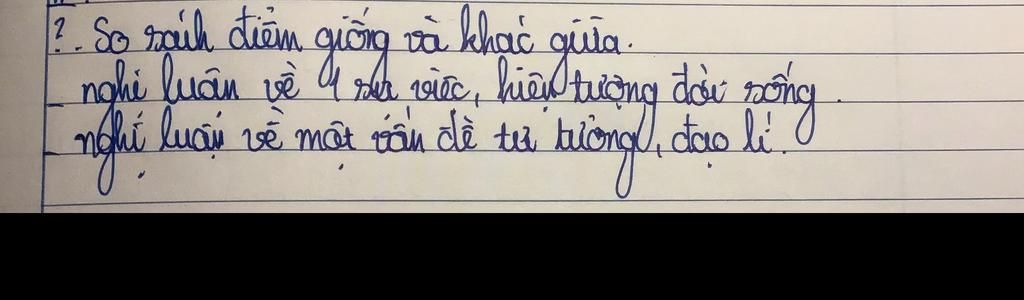 ?. So sánh điểm giống và khác giữa.
- nghị luận về 1 sự việc, hiện tượng đời sống.
- nghị luận về một vấn đề tư tưởng, đạo lí.